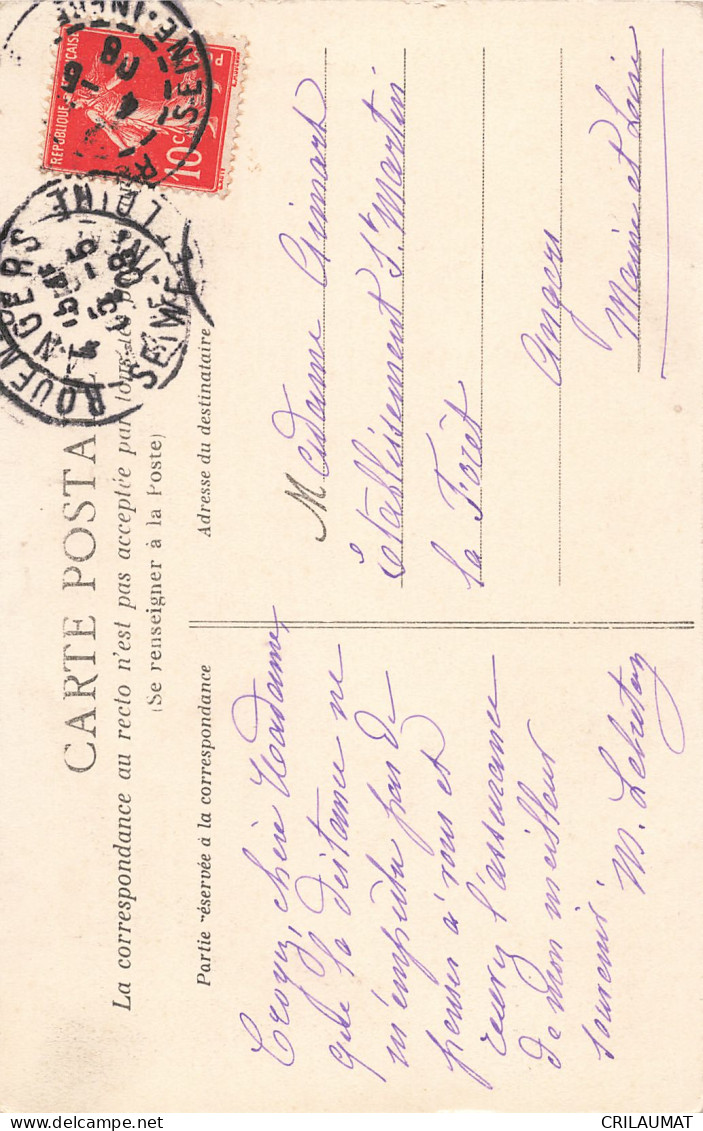 CARTE POSTALE
La correspondance au recto n'est pas acceptée par tous les
(Se renseigner à la Poste)
Partie réservée à la correspondance
Croyez, chère Madame,
que la distance ne
m'empêche pas de
penser à vous et
recevez l'assurance
de mon meilleur
souvenir
M. Lebreton
Adresse du destinataire
Madame
Établissement St Martin
La Forêt
Angers
Maine et Loire
REPUBLIQUE FRANÇAISE
10 c
ROUEN
SEINE INFRE
ANGERS
CRILAUMAT